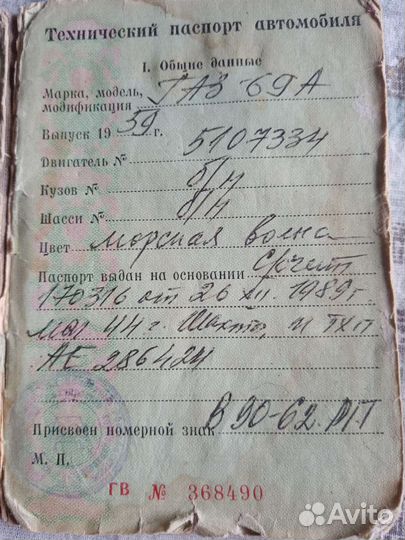 Технический паспорт автомобиля
I. Общие данные
Марка, модель, ГАЗ-69А
модификация
Выпуск 1959 г.
Двигатель № 5107334
Кузов № б/н
Шасси № б/н
Цвет морская волна
Паспорт выдан на основании
170316 от 26 XII. 1989г
44 г. Шахты, и т/п
АЕ 286424
Присвоен номерной знак В 90-62 РП
М. П.
ГВ № 368490
Avito